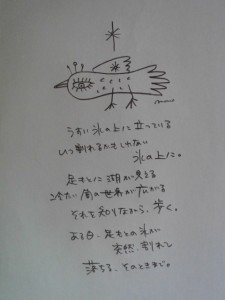 うすい氷の上に立っている
いつ割れるかもしれない
氷の上に。
足もとに湖が見える
冷たい闇の世界が広がる
それを知りながら、歩く。
ある日、足もとの氷が
突然 割れて
落ちる、そのときまで。